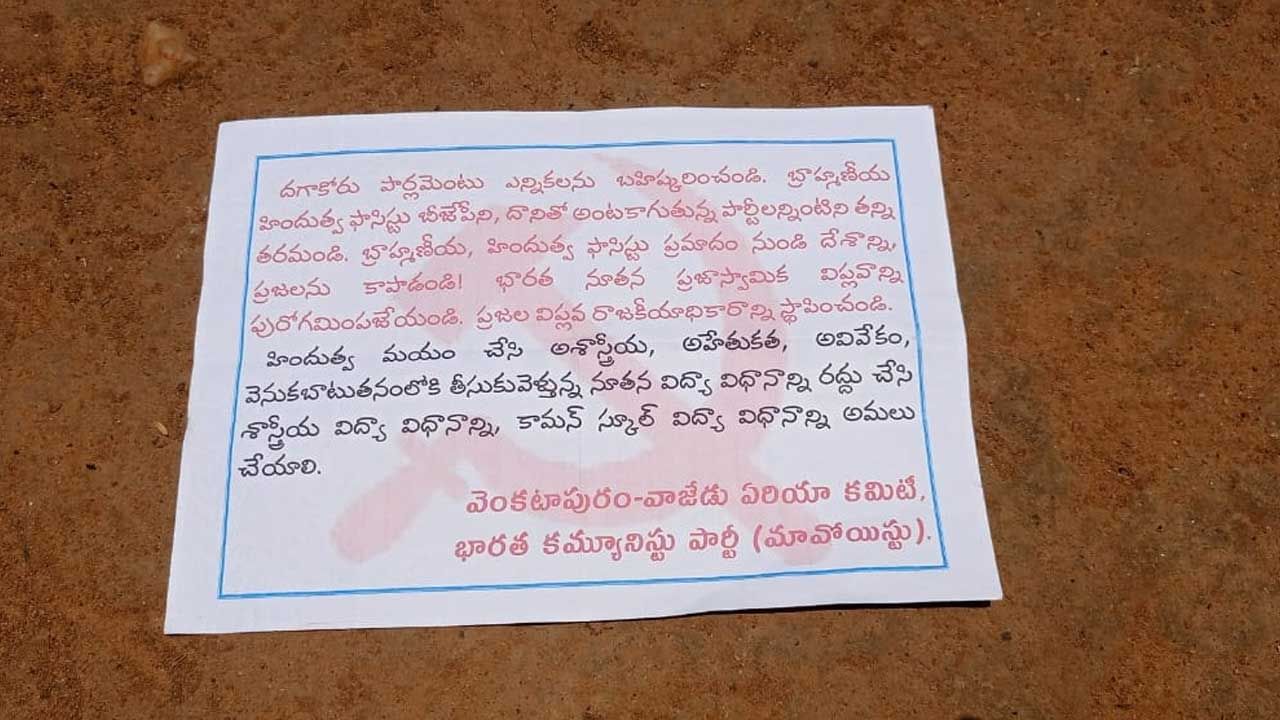 దగాకోరు పార్లమెంటు ఎన్నికలను బహిష్కరించండి. బ్రాహ్మణీయ
హిందుత్వ ఫాసిస్టు బీజేపీని, దానితో అంటకాగుతున్న పార్టీలన్నింటిని తన్ని
తరమండి. బ్రాహ్మణీయ, హిందుత్వ ఫాసిస్టు ప్రమాదం నుండి దేశాన్ని,
ప్రజలను కాపాడండి! భారత నూతన ప్రజాస్వామిక విప్లవాన్ని
పురోగమింపజేయండి. ప్రజల విప్లవ రాజకీయాధికారాన్ని స్థాపించండి.
హిందుత్వ మయం చేసి అశాస్త్రీయ, అహేతుకత, అవివేకం,
వెనుకబాటుతనంలోకి తీసుకువెళ్తున్న నూతన విద్యా విధానాన్ని రద్దు చేసి
శాస్త్రీయ విద్యా విధానాన్ని, కామన్ స్కూల్ విద్యా విధానాన్ని అమలు
చేయాలి.
వెంకటాపురం-వాజేడు ఏరియా కమిటీ,
భారత కమ్యూనిస్టు పార్టీ (మావోయిస్టు).